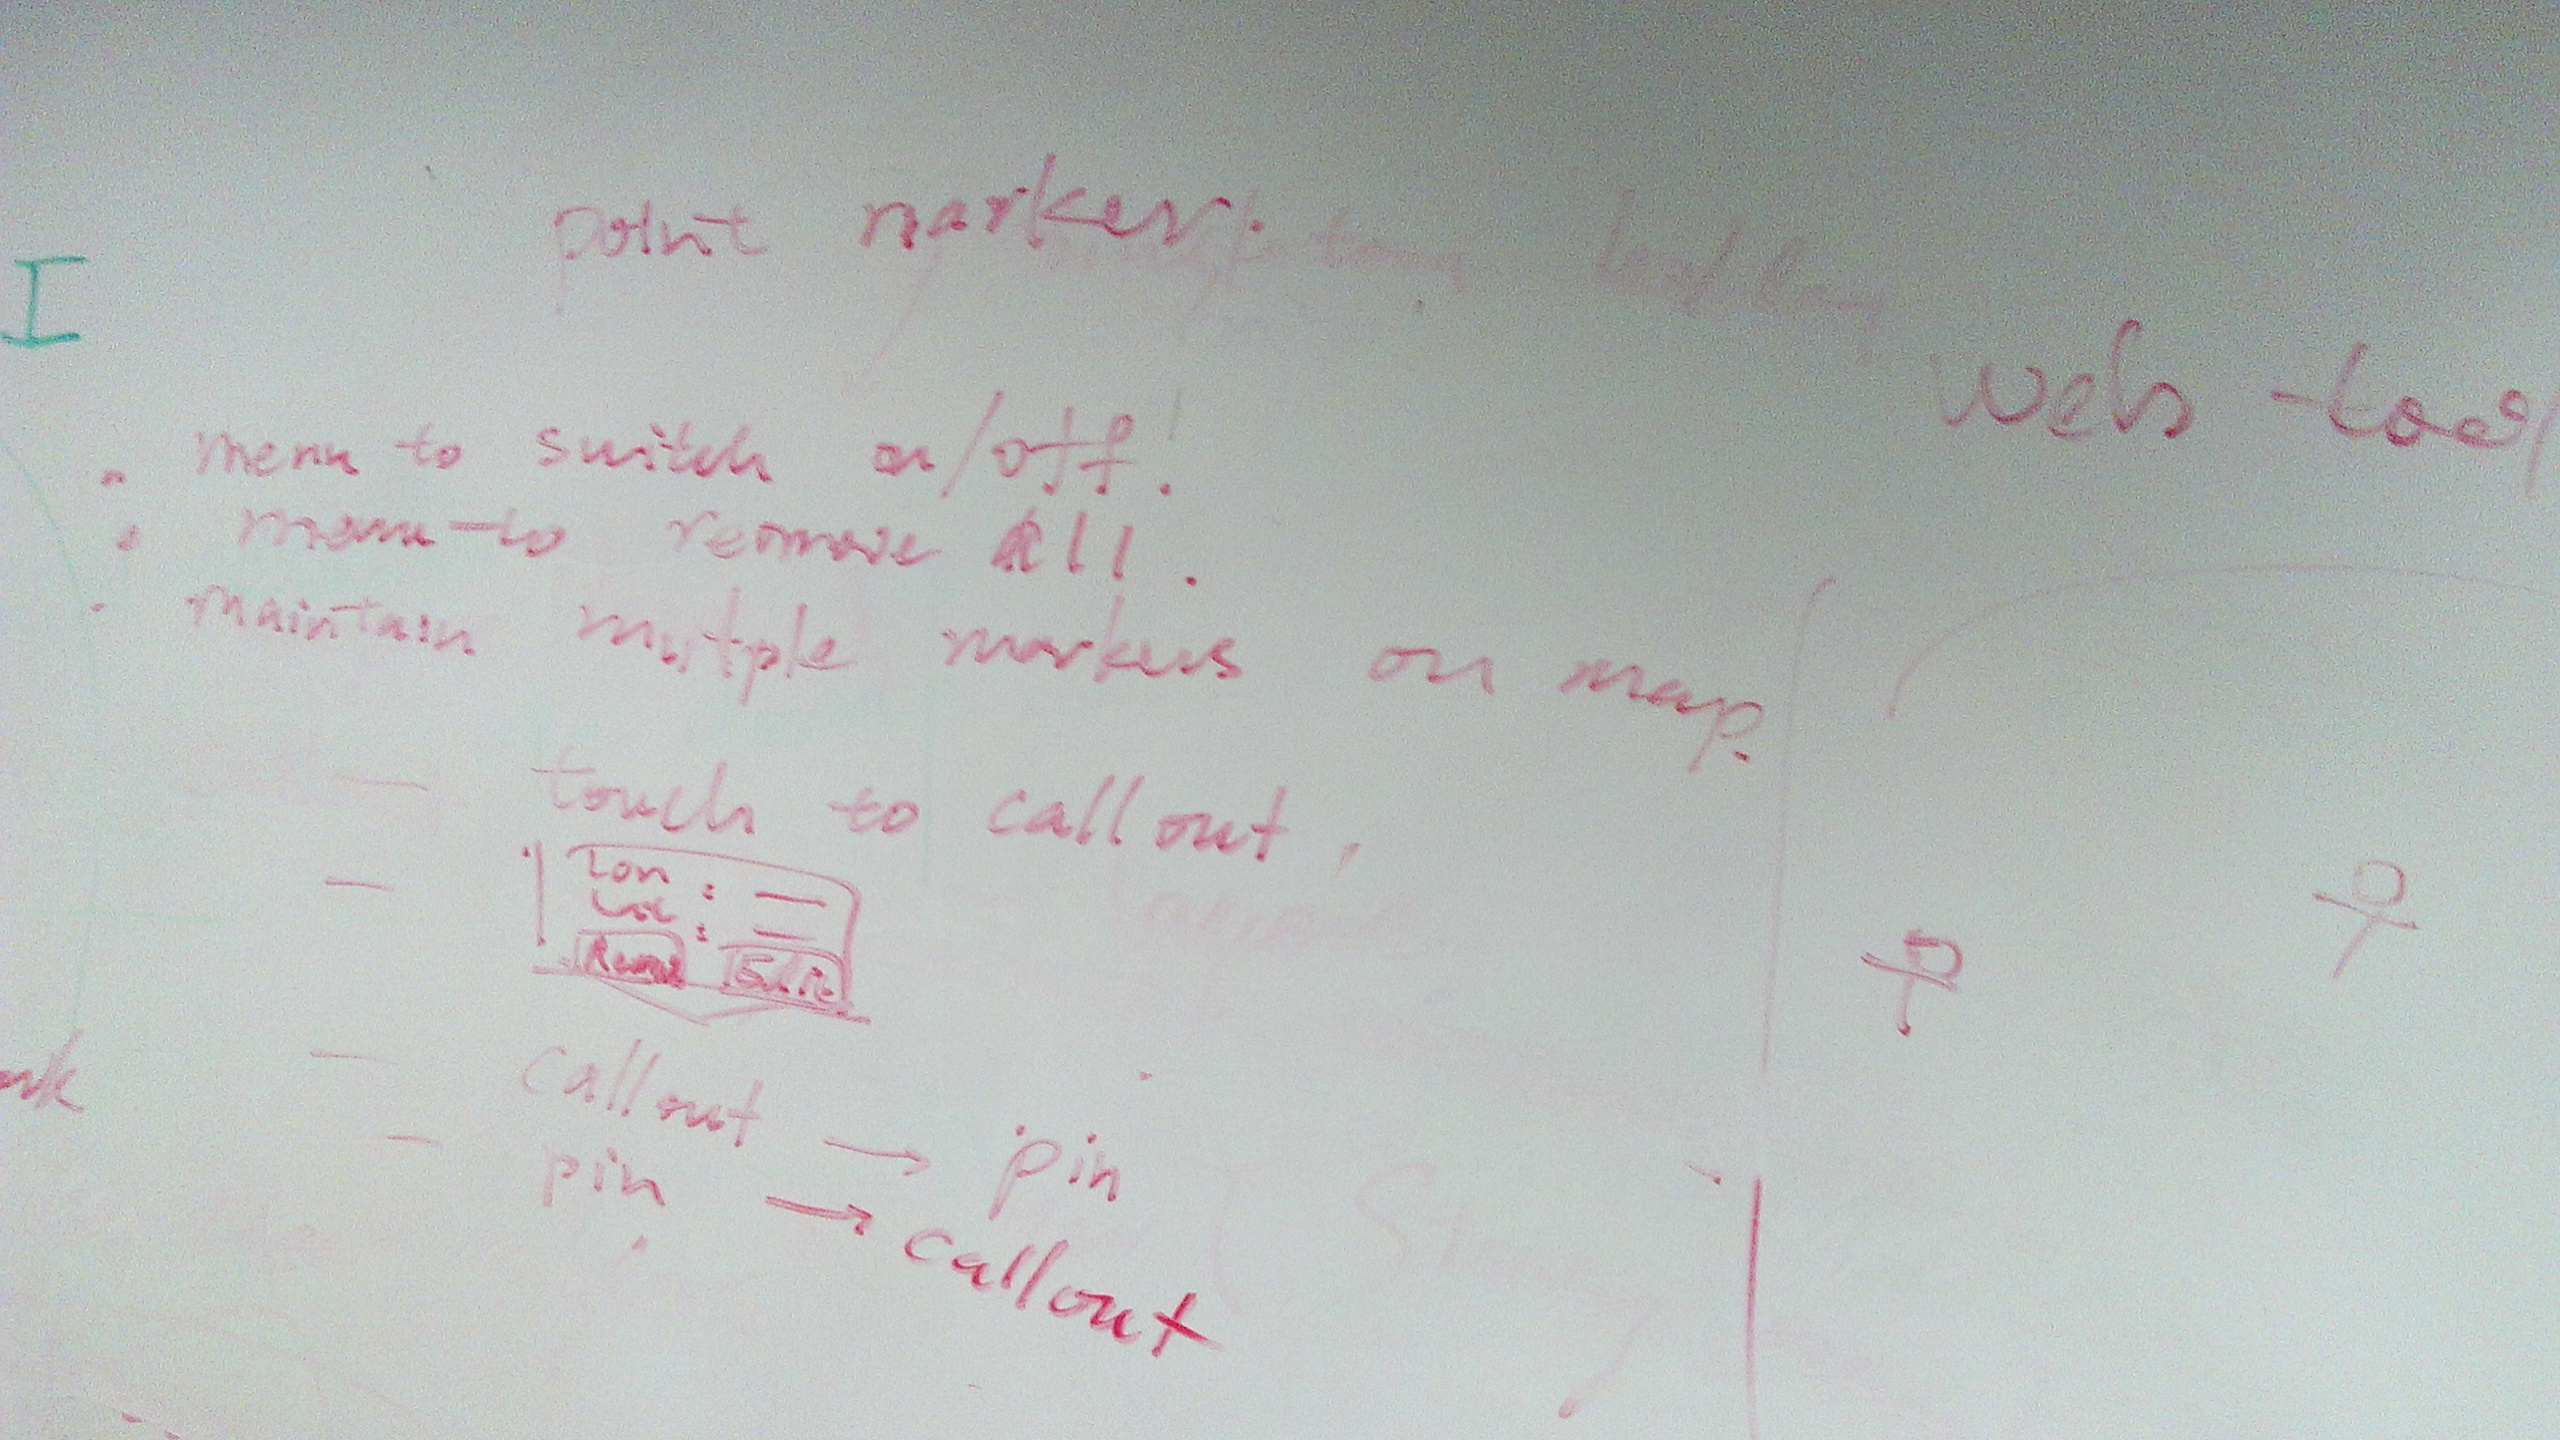 point marker.
I
web-tool
. menu to switch on/off!
. menu to remove all.
. maintain mutple markers on map.
— touch to callout,
— Lon : —
Lat : —
Remove Edit
— callout → pin
— pin → callout